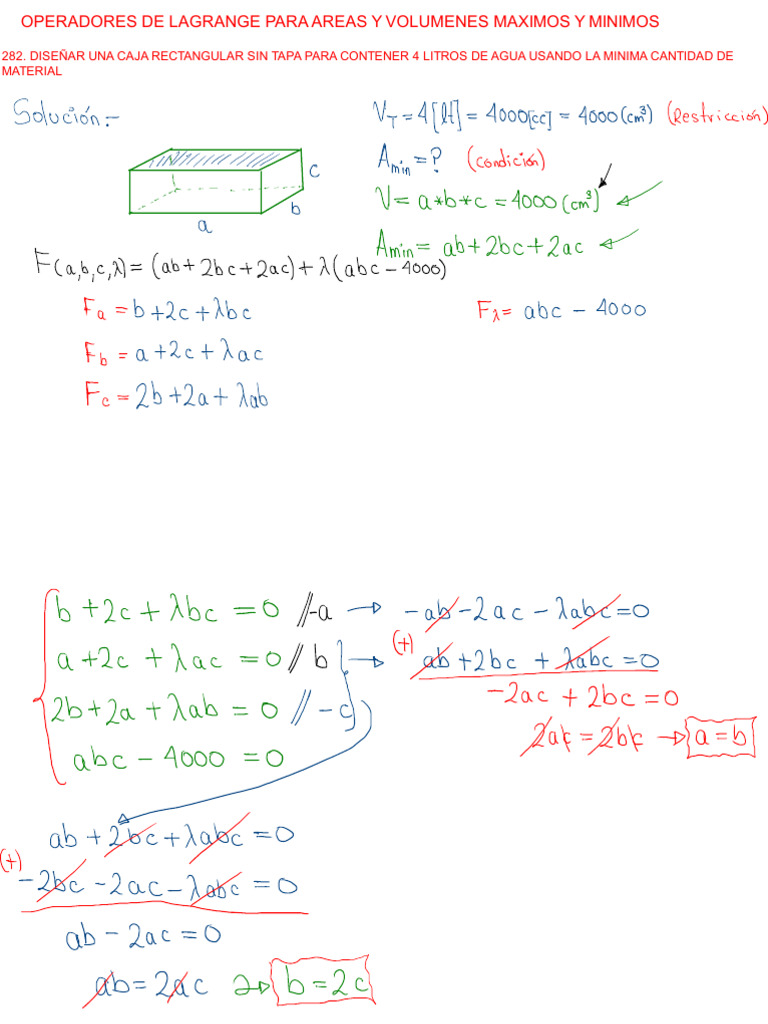 OPERADORES DE LAGRANGE PARA AREAS Y VOLUMENES MAXIMOS Y MINIMOS
282. DISEÑAR UNA CAJA RECTANGULAR SIN TAPA PARA CONTENER 4 LITROS DE AGUA USANDO LA MINIMA CANTIDAD DE
MATERIAL
Solución:-
V_T = 4[lt] = 4000[cc] = 4000(cm³) (Restricción)
A_min = ? (condición)
c
b
a
V = a*b*c = 4000(cm³)
A_min = ab + 2bc + 2ac
F(a,b,c,λ) = (ab + 2bc + 2ac) + λ(abc - 4000)
F_a = b + 2c + λbc
F_λ = abc - 4000
F_b = a + 2c + λac
F_c = 2b + 2a + λab
b + 2c + λbc = 0 //-a → -ab - 2ac - λabc = 0
(+)
a + 2c + λac = 0 // b → ab + 2bc + λabc = 0
-2ac + 2bc = 0
2b + 2a + λab = 0 // -c
2ac = 2bc → a = b
abc - 4000 = 0
ab + 2bc + λabc = 0
(+)
-2bc - 2ac - λabc = 0
ab - 2ac = 0
ab = 2ac → b = 2c